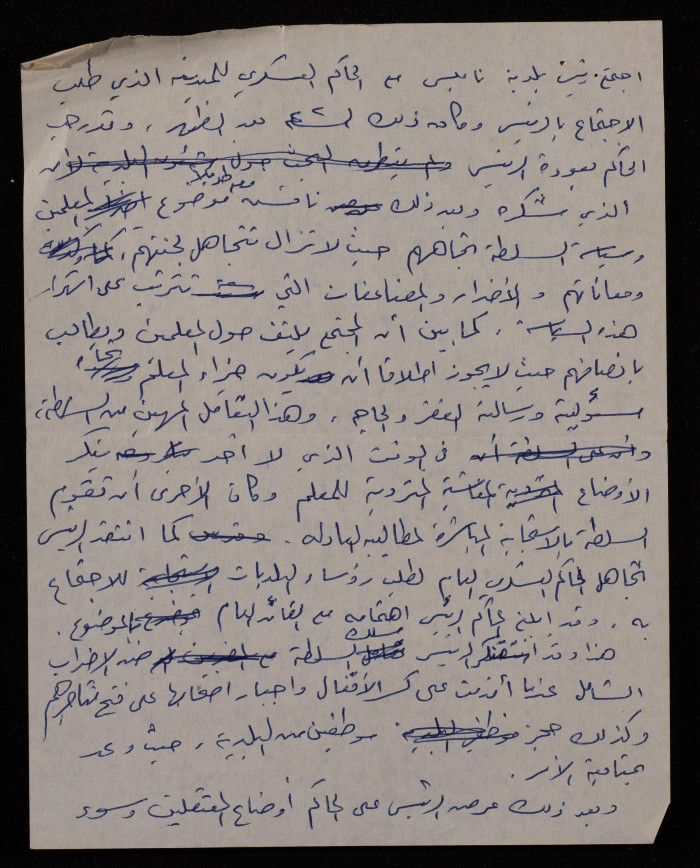 اجتمع رئيس بلدية نابلس مع الحاكم العسكري للمدينة الذي طلب
الاجتماع بالرئيس وكان ذلك الساعة بعد الظهر، وقد رحب
الحاكم بعودة الرئيس ولم يتطرق البحث حول شؤون البلدية
الذي شكره وبعد ذلك ناقشه مطولاً موضوع اضراب المعلمين
وسياسة السلطة تجاههم حيث لا تزال تتجاهل لجنتهم،
ومعاناتهم والأضرار والمضاعفات التي تترتب على استمرار
هذه السياسة، كما بين أن المجتمع يلتف حول المعلمين ويطالب
بانصافهم حيث لا يجوز اطلاقا أن يكون جزاء المعلم
مسؤولية ورسالة الفقر والحاجة، وهذا التعامل المهين من السلطة،
وأن على السلطة أن في الوقت الذي لا أحد ينكر
الأوضاع المعاشية المتردية للمعلم وكان الأحرى أن تقوم
السلطة بالاستجابة المباشرة لمطاليبه العادلة. كما انتقد الرئيس
تجاهل الحاكم العسكري العام لطلب رؤساء البلديات للاجتماع
به، وقد ابلغ الحاكم الرئيس اهتمامه مع القائد العام الموضوع.
هذا وقد استنكر الرئيس مسلك السلطة ضد الاضراب
الشامل عندما أقدمت على كسر الأقفال واجبار اصحابها على فتح متاجرهم
وكذلك حجز موظفي البلدية موظفين من البلدية، حيث وعد
بمتابعة الأمر.
وبعد ذلك عرض الرئيس على الحاكم أوضاع المعتقلين وسوء